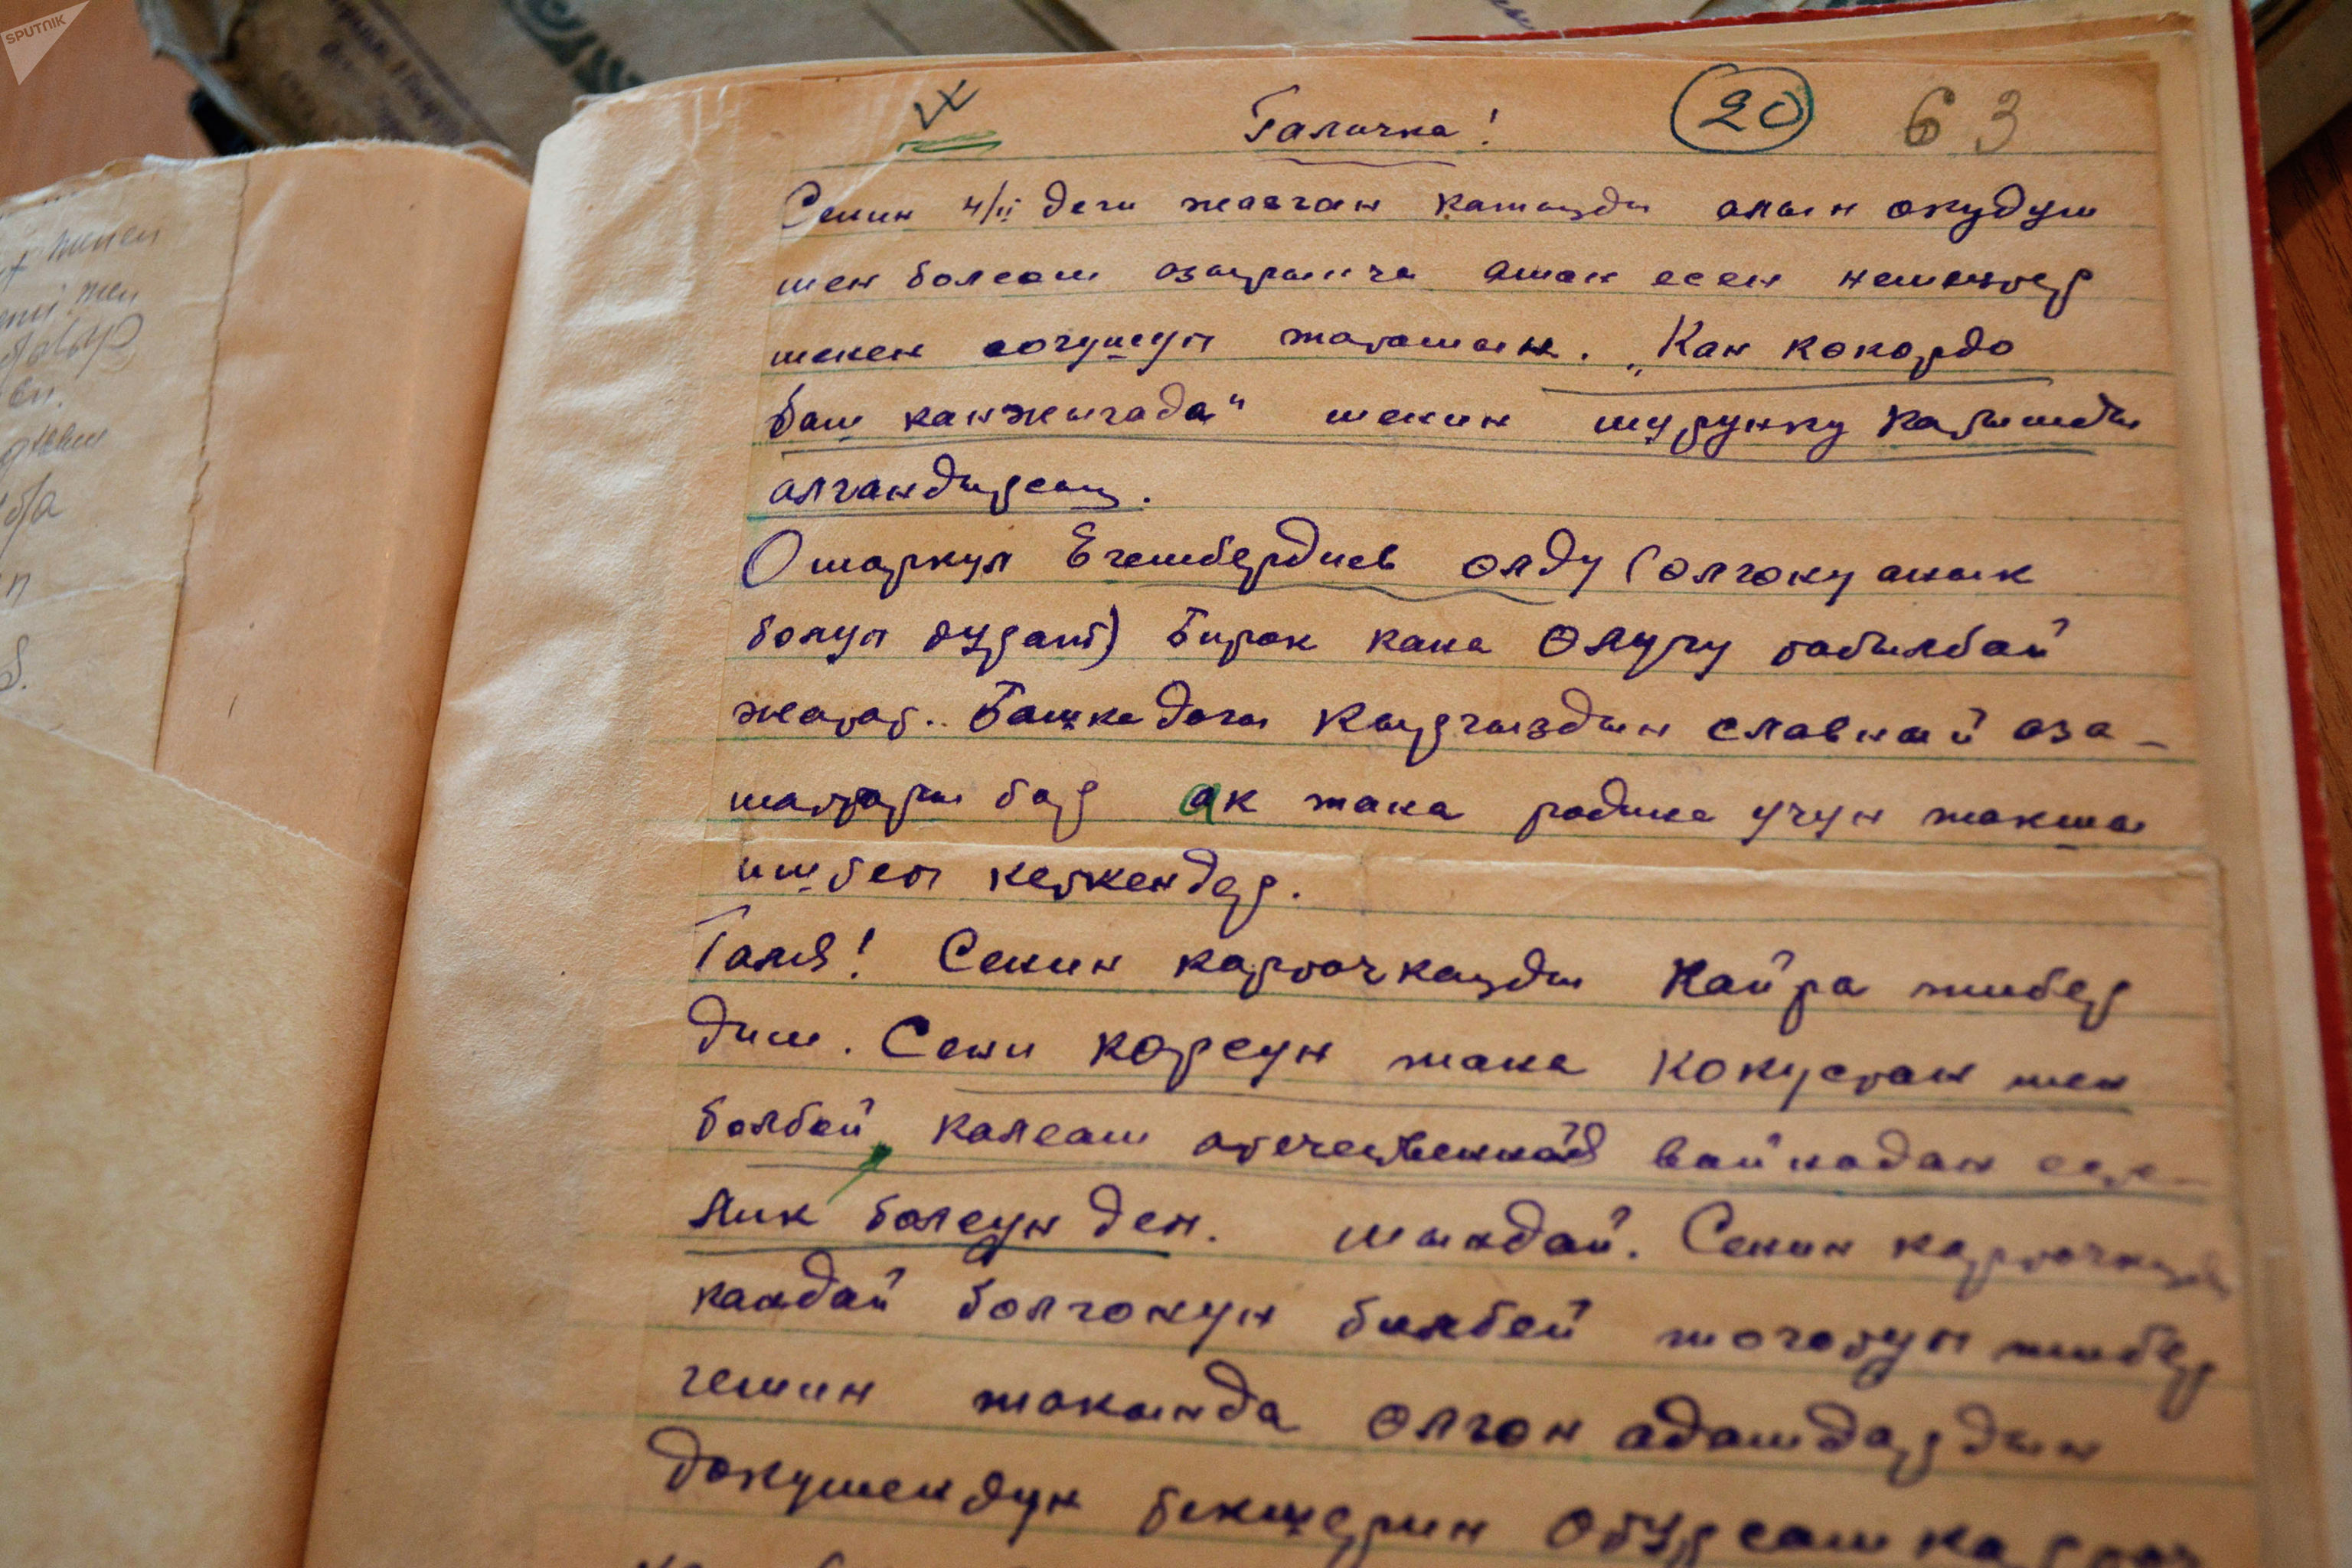 SPUTNIK
Галичка!
20
63
Сенин 4/II деги жазган катыңды алып окудум
мен болсом азырынча аман эсен немецтер
менен согушуп жатамын. „Кан какордо
баш канжыгада" менин мурунку катымды
алгандырсың.
Омаркул Егембердиев өлду (өлгөну анык
болуп турат) Бирок кана өлугу табылбай
жатат. Башкадагы Кыргыздын славный аза-
маттары бар ак жана родина учун жакшы
иштеп кеткендер.
Галя! Сенин карточкаңды Кайра жибер
дим. Сени корсун жана кокустан мен
болбой калсам отечественной войнадан
лик болсун деп. мындай. Сенин карточкаңды
кандай болгонун билбей жоготуп жибер
гемин жакында өлгөн адамдардын
документ бекшерин